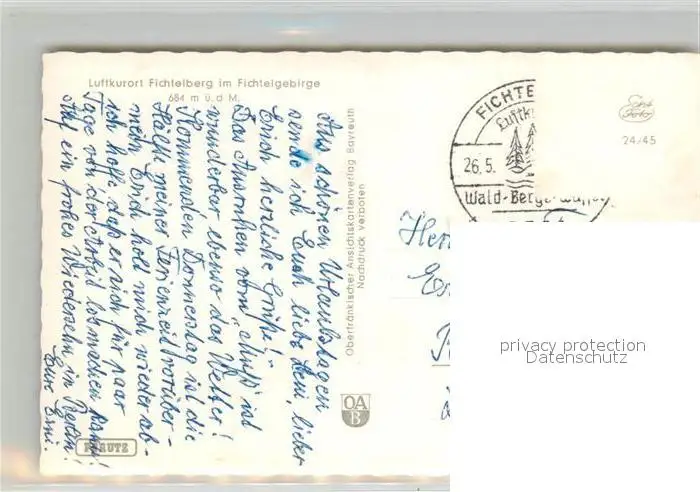 Luftkurort Fichtelberg im Fichtelgebirge
684 m ü. d. M.
Aus schönen Urlaubstagen
sende ich Euch liebe Deni, lieber
Erich herzliche Grüße!
Das Ausruhen vom "Muß" ist
wunderbar ebenso das Wetter!
Kommenden Donnerstag ist die
Hälfte meiner Ferienzeit vorüber -
mein Erich holt mich wieder ab -
ich hoffe, daß er sich für paar
Tage von der Arbeit losmachen kann!
Auf ein frohes Wiedersehn in
Eure Erni.
Oberfränkischer Ansichtskartenverlag Bayreuth
Nachdruck verboten
OA
B
FICHTE
Luftku
26.5.
Wald-Berge-Wasser
Echt
Foto
24/45
Her
privacy protection
Datenschutz